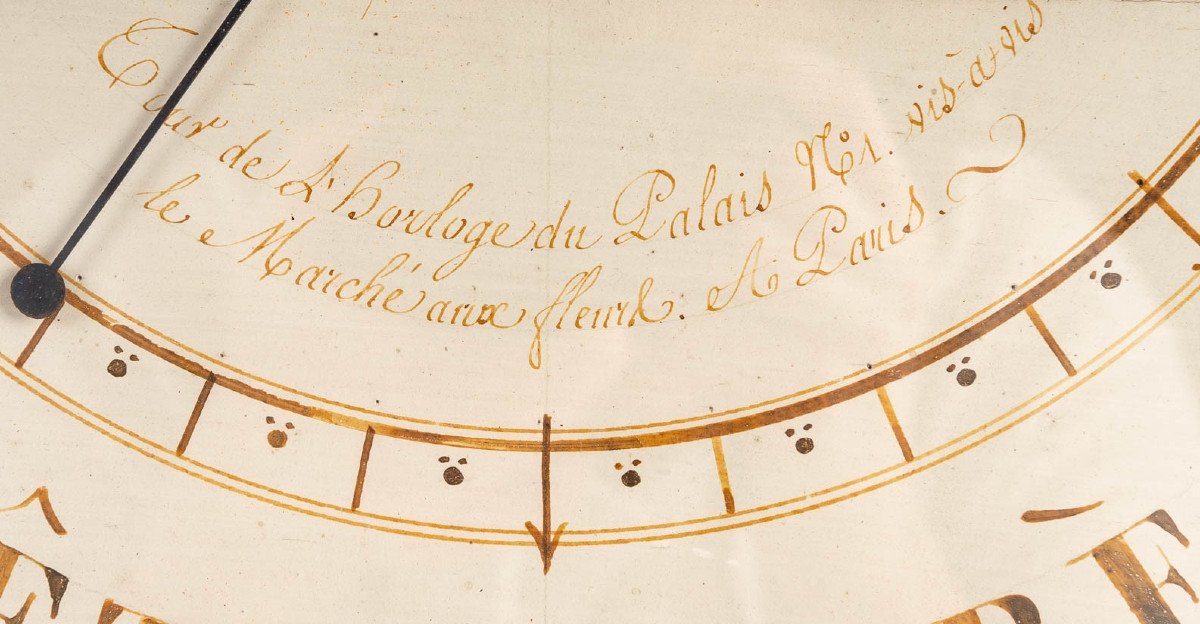 Tour de L'horloge du Palais N° 1. vis-à-vis
le Marché aux fleurs. A Paris.